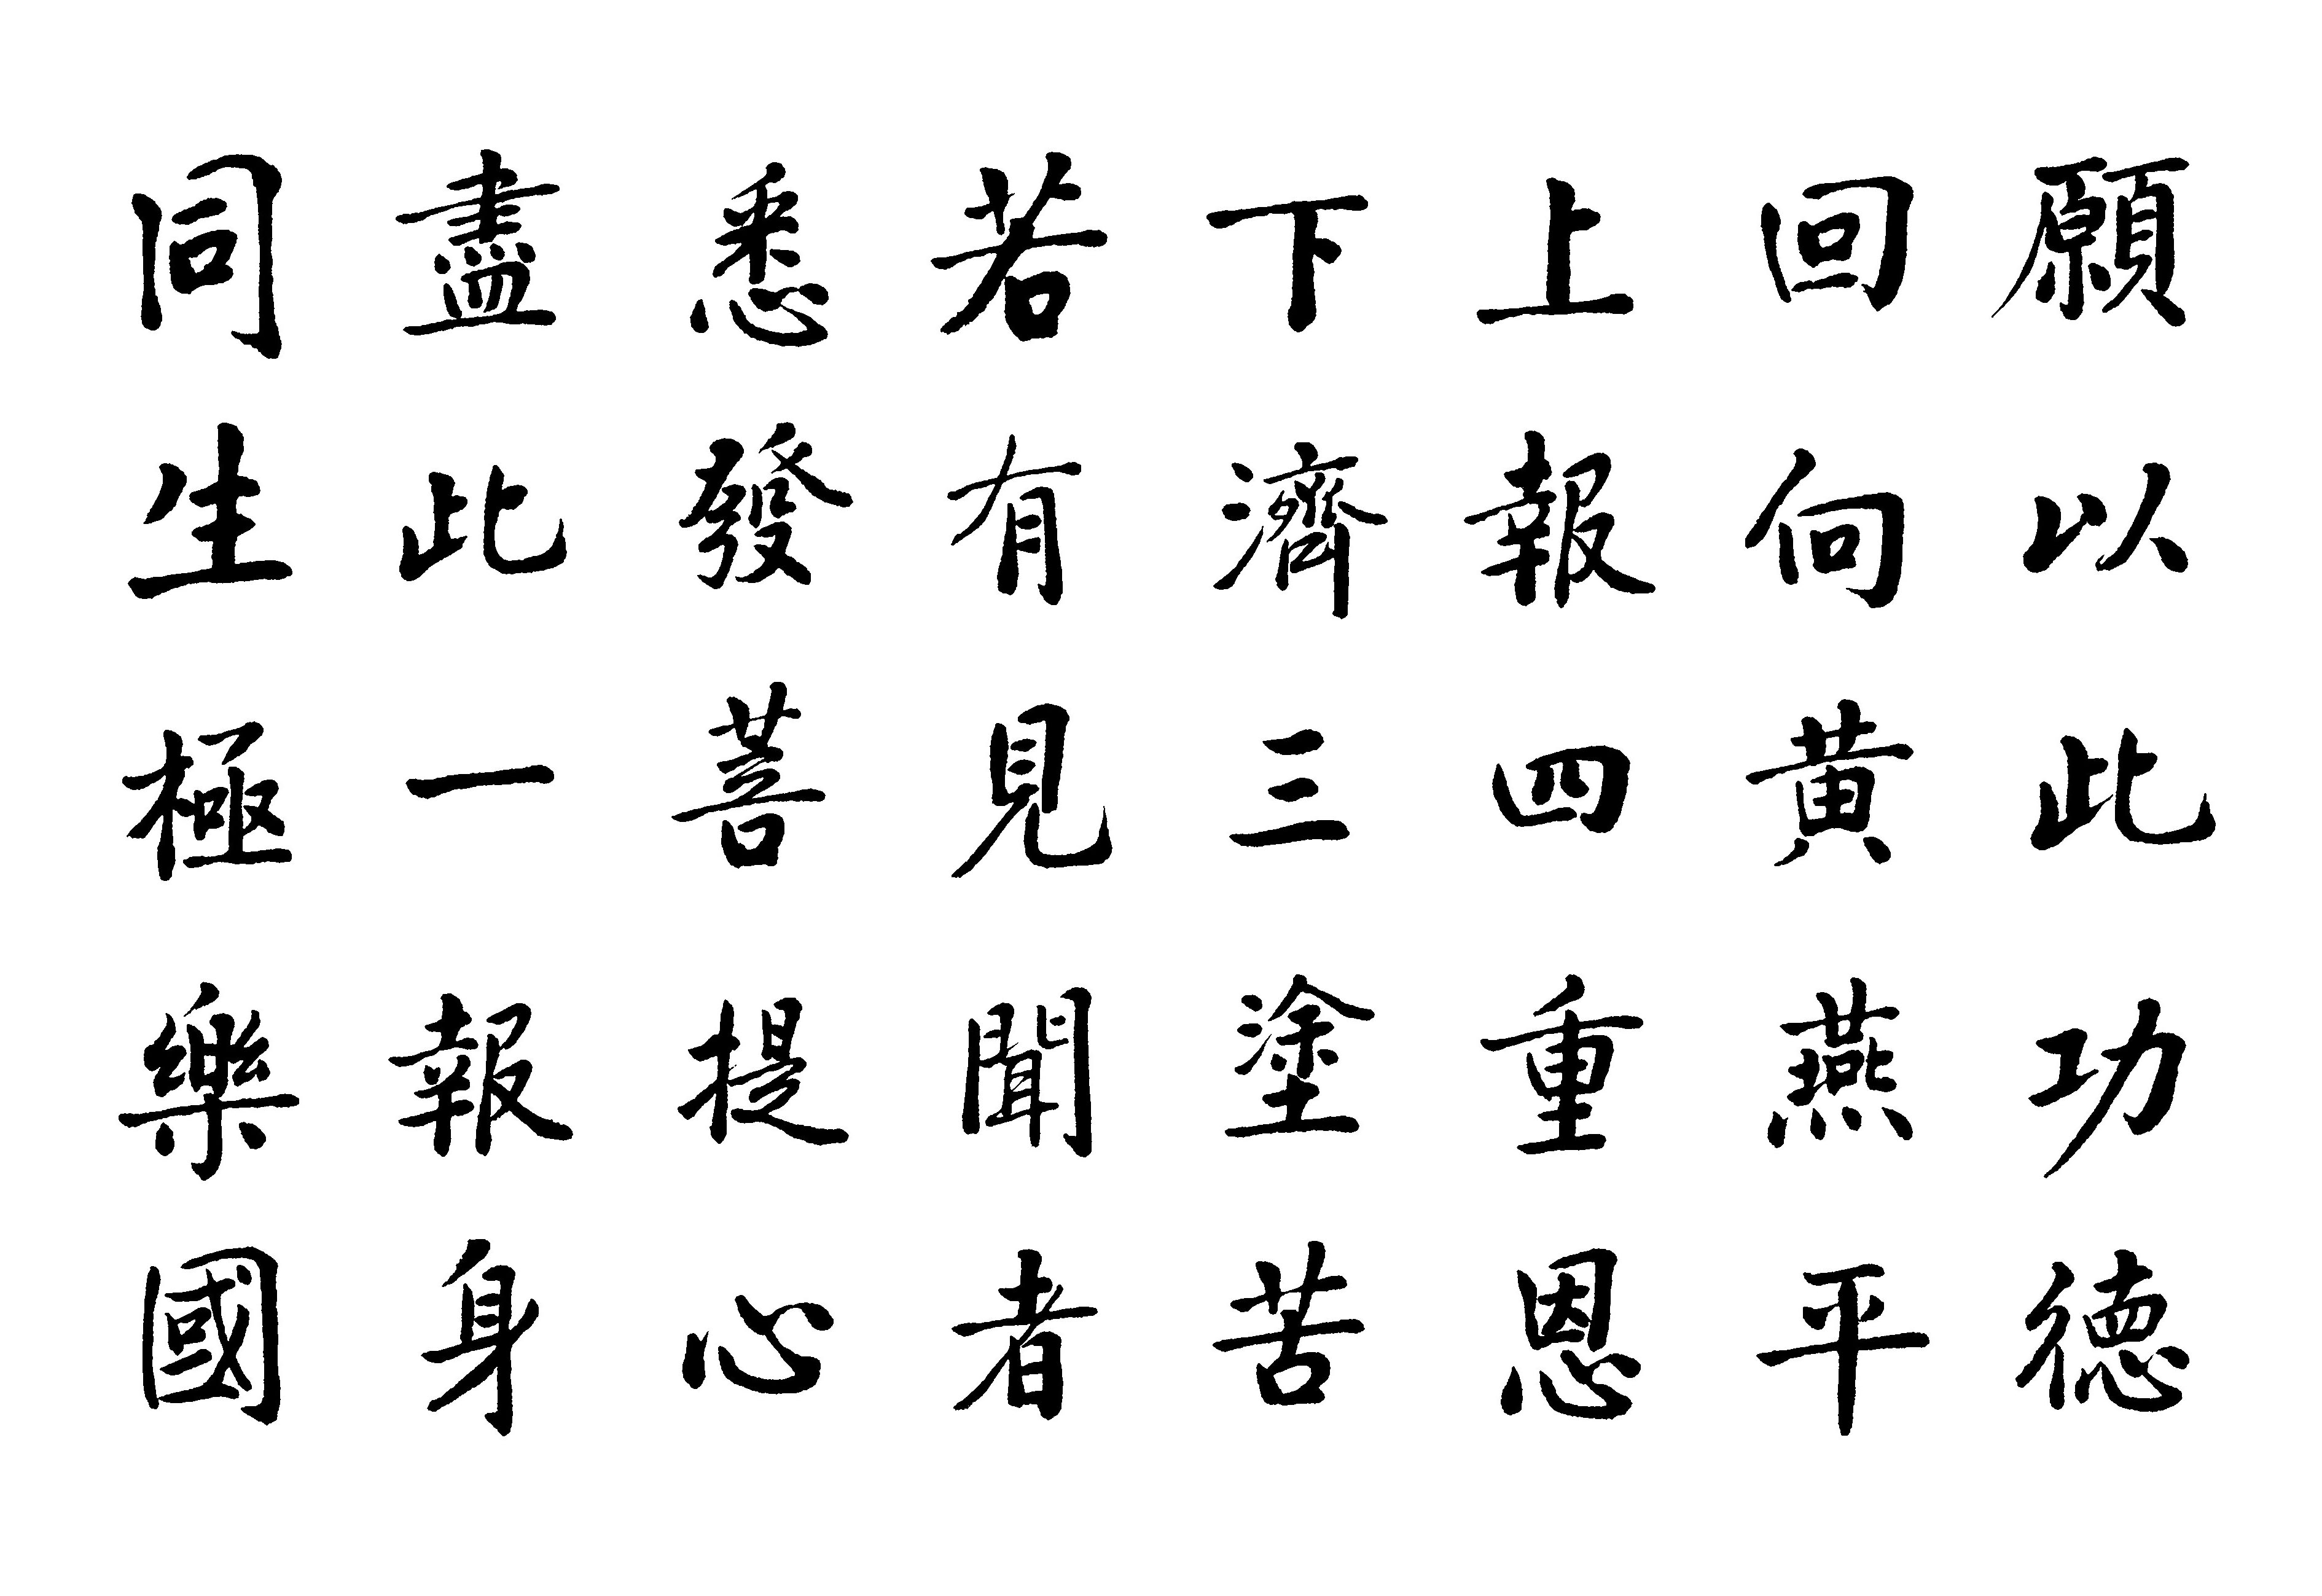 願以此功德
回向黃燕平
上報四重恩
下濟三塗苦
若有見聞者
悉發菩提心
盡此一報身
同生極樂國